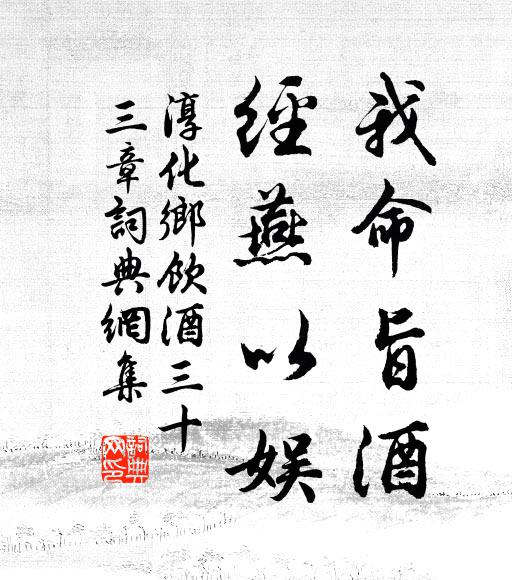 我命旨酒
經燕以娛
淳化鄉飲酒三十
三章詞典網集
詞典网印